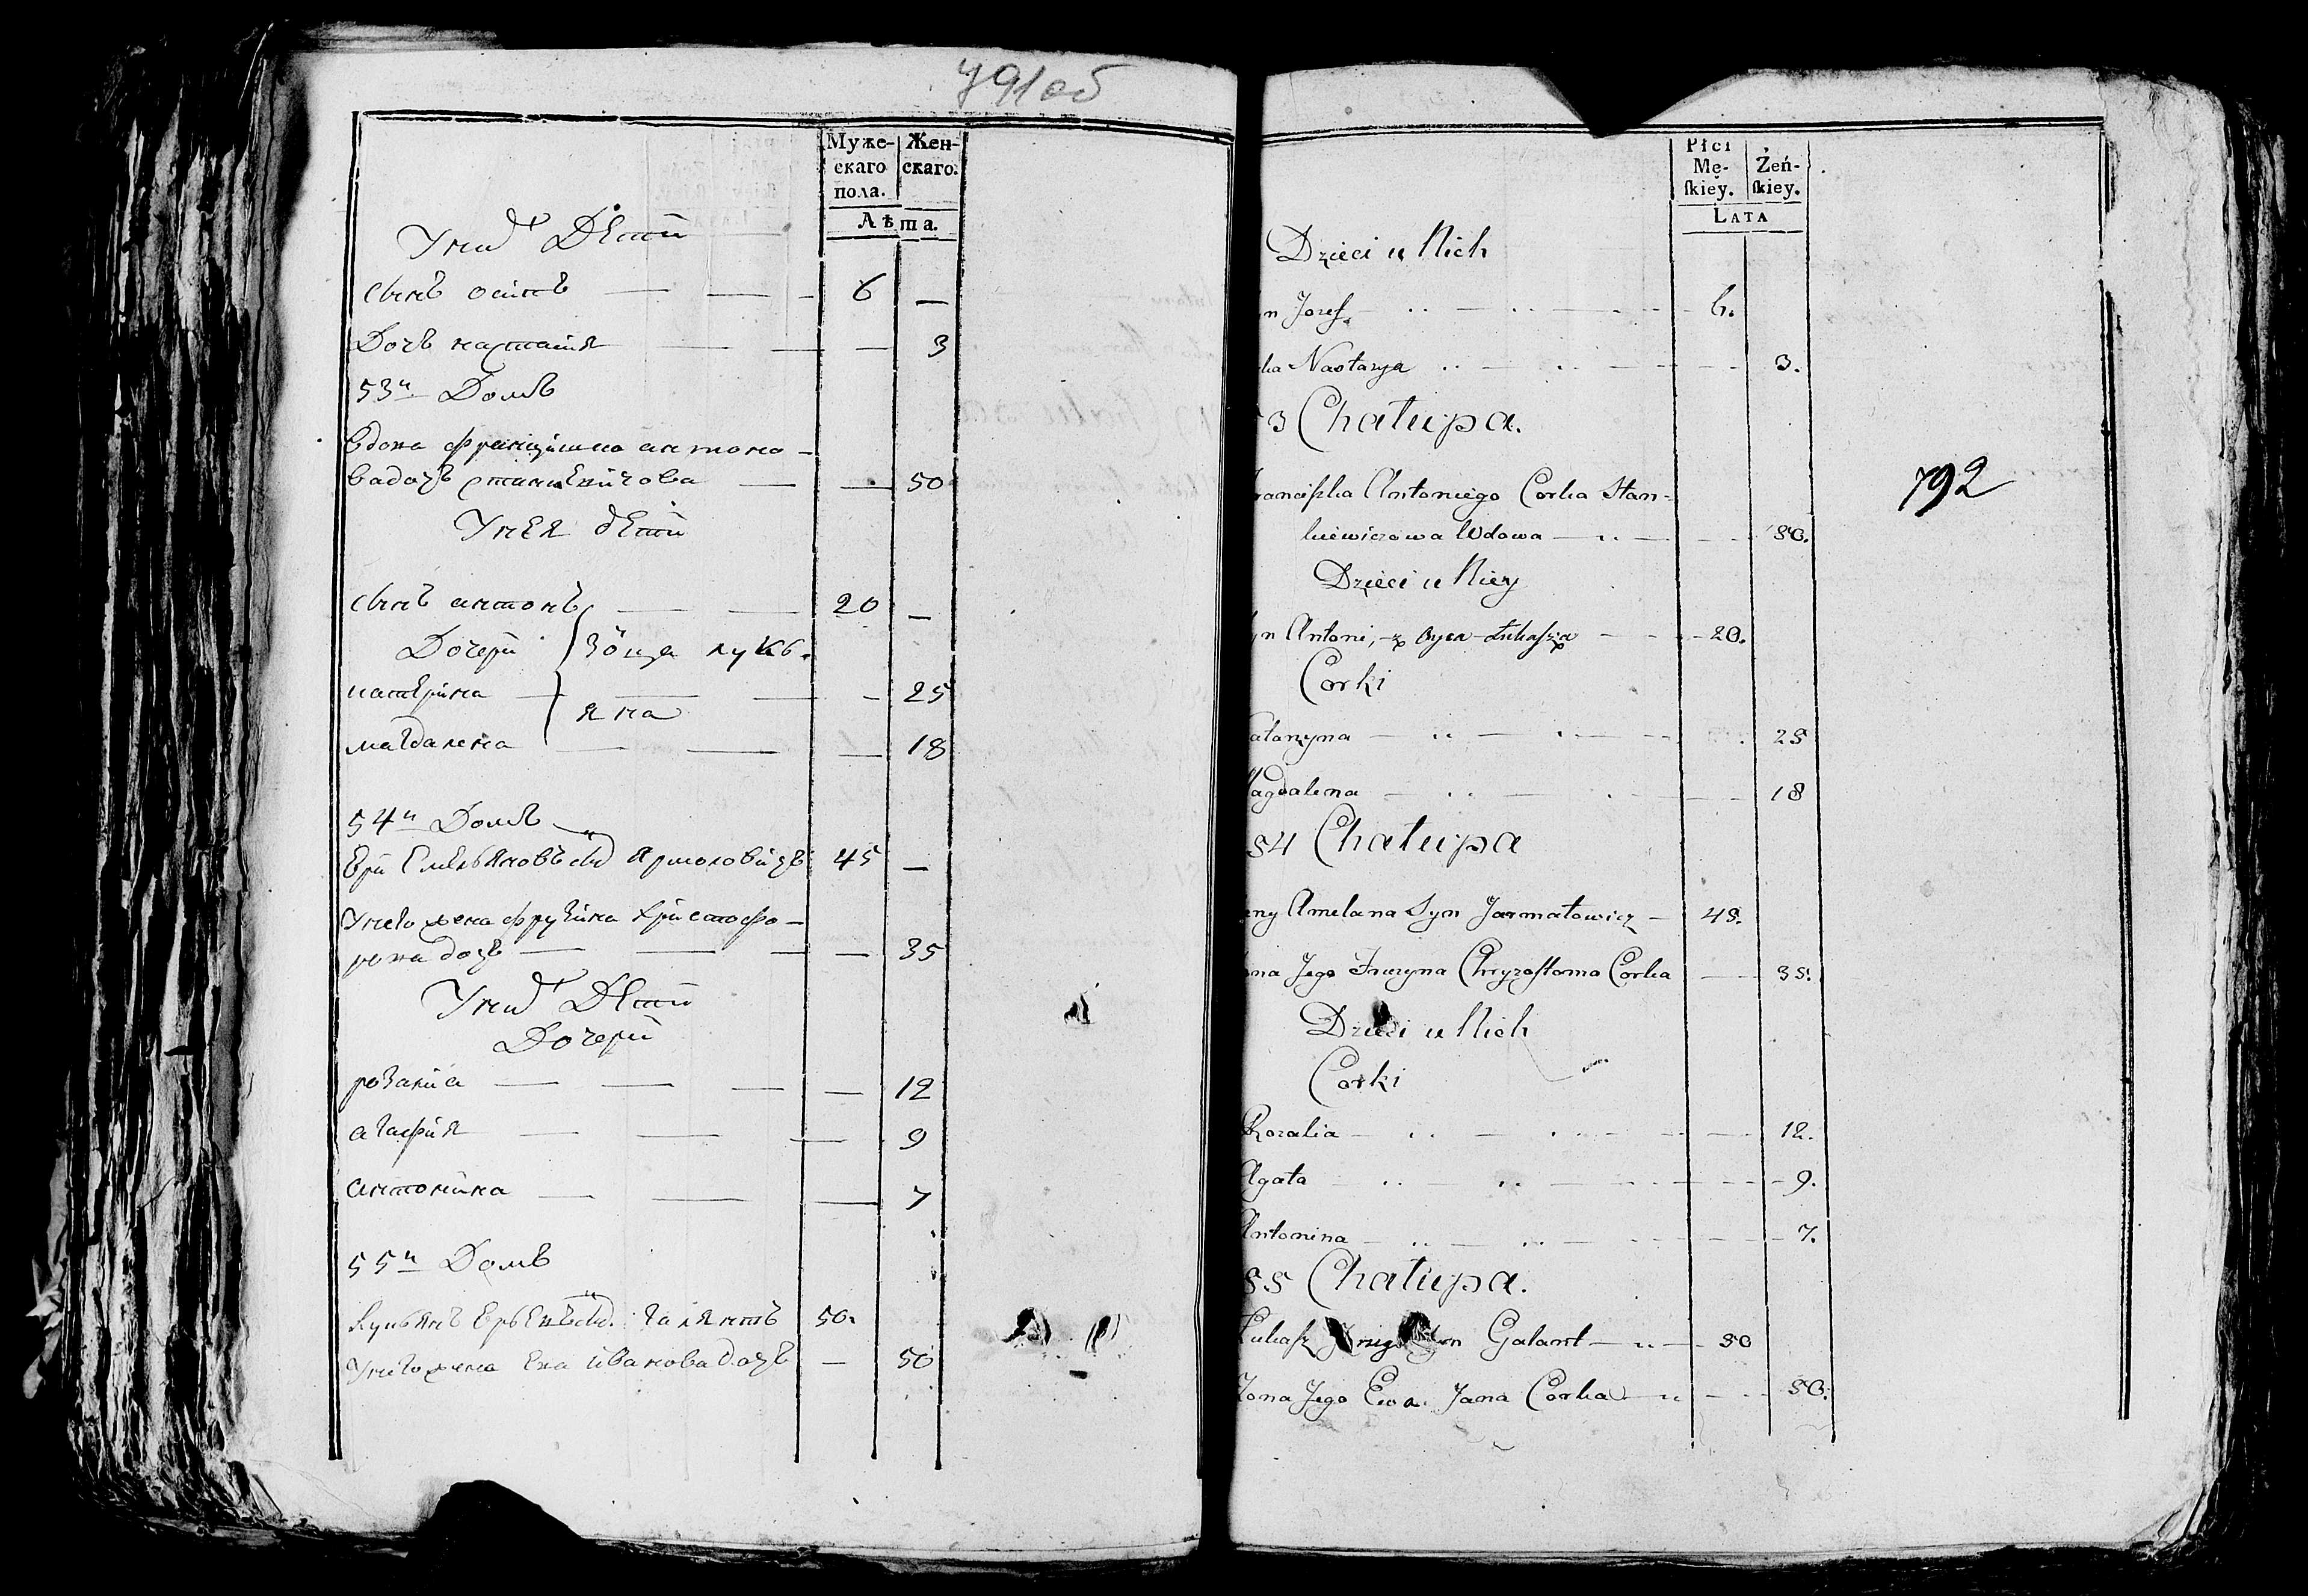 791об
Муже-
скаго
пола.
Жен-
скаго.
Лѣта.
У нид Дети
сынъ осипъ 6 —
Дочь настасия — 3
53й Домъ
вдова францишка антоно-
ва дочь станкевичова — 50
У нея дети
сынъ антонъ 20 —
Дочери
катерина — 25
яна
магдалена — 18
54й Домъ
Ярмоловичъ 45 —
У него жена фрузина христофо-
рова дочь — 35
У нид Дети
Дочери
розалиа — 12
агафия — 9
антонина — 7
55й Домъ
галянтъ 50.
У него жена Ева иванова дочь — 50
Płci
Mę-
ſkiey.
Żeń-
ſkiey.
LATA
Dzieci u Nich
n Jozef 6.
ka Nastazya 3.
3 Chałupa.
ranciſzka Antoniego Corka Stan-
kiewiczowa Wdowa 50.
Dzieci u Niey
yn Antoni, 20.
Corki
atarzyna 25
Magdalena 18
54 Chałupa
Amelana Syn Jarmałowicz 45.
ona Jego Fruzyna Chryzoſtoma Corka 35.
Dzieci u Nich
Corki
Rozalia 12.
Agata 9.
Antonina 7.
55 Chałupa.
Łukaſz Syn Galant 50
Żona Jego Ewa Jana Corka 50.
792